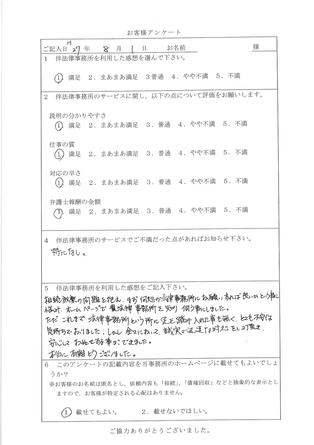 お客様アンケート
ご記入日 H27年 8月 1日 お名前 様
1 伴法律事務所を利用した感想を選んで下さい。
①満足 2．まあまあ満足 3 普通 4．やや不満 5．不満
2 伴法律事務所のサービスに関し、以下の点について評価をお願いします。
説明の分かりやすさ
①満足 2．まあまあ満足 3．普通 4．やや不満 5．不満
仕事の質
①満足 2．まあまあ満足 3．普通 4．やや不満 5．不満
対応の早さ
①満足 2．まあまあ満足 3．普通 4．やや不満 5．不満
弁護士報酬の金額
①満足 2．まあまあ満足 3．普通 4．やや不満 5．不満
4 伴法律事務所のサービスでご不満だった点があればお知らせ下さい。
特になし。
5 伴法律事務所のご感想をご記入下さい。
相続放棄の問題を抱え、まず何処の法律事務所にお願いすれば良いかという
ホームページで貴法律事務所を
ただ、これまで法律事務所という所に足を踏み入れた事も無く、とても不安な
気持ちでおりました。しかし、全てにおいて、誠実で迅速な対応をして頂き、
安心してお任せする事ができました。
本当に有難うございました。
6 このアンケートの記載内容を当事務所のホームページに載せてもよいでしょうか？
※お客様のお名前は匿名とし、依頼内容も「相続」、「債権回収」などと抽象的な表示としますので、お客様が特定される心配はありません。
①載せてもよい。 2．載せないでほしい。
ご協力ありがとうございました。